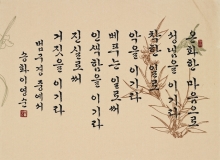 온화한 마음으로
성냄을 이기라
착한 일로
악을 이기라
베푸는 일로써
인색함을 이기라
진실로써
거짓을 이기라
법구경 중에서
송화 이영순